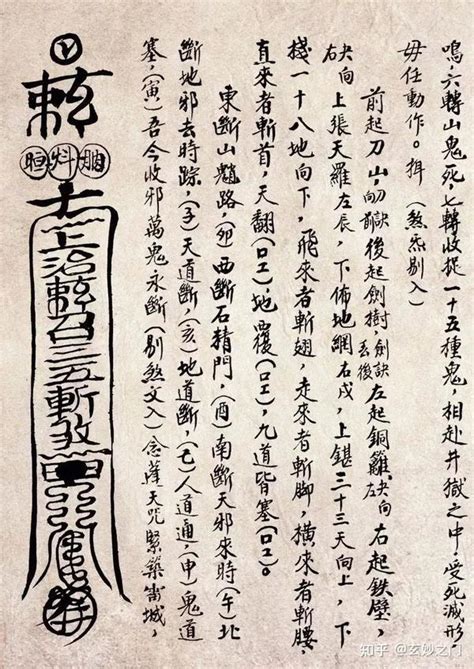 鳴,六轉山鬼死,七轉收捉一十五種鬼,相赴井獄之中,受死滅形
毋任動作。揖(煞炁剔入)
前起刀山,後起劍樹,劍訣去後左起銅籬,訣向左右起鉄壁,
訣向右上張天羅左辰,下佈地網右戌,上鎮三十三天向上,下
棧一十八地向下,飛來者斬翅,走來者斬脚,橫來者斬腰,
直來者斬首,天翻(口工),地覆(口工),九道皆塞(口工)。
東斷山魈路,(卯)西斷石精門,(酉)南斷天邪來時(午)北
斷地邪去時踪,(子)天道斷,(亥)地道斷,(巳)人道通,(申)鬼道
塞,(寅)吾今收邪萬鬼永斷(剔煞文入)念蓬天咒緊築雷城,
上治敕召三五斬煞
知乎 @玄妙之门